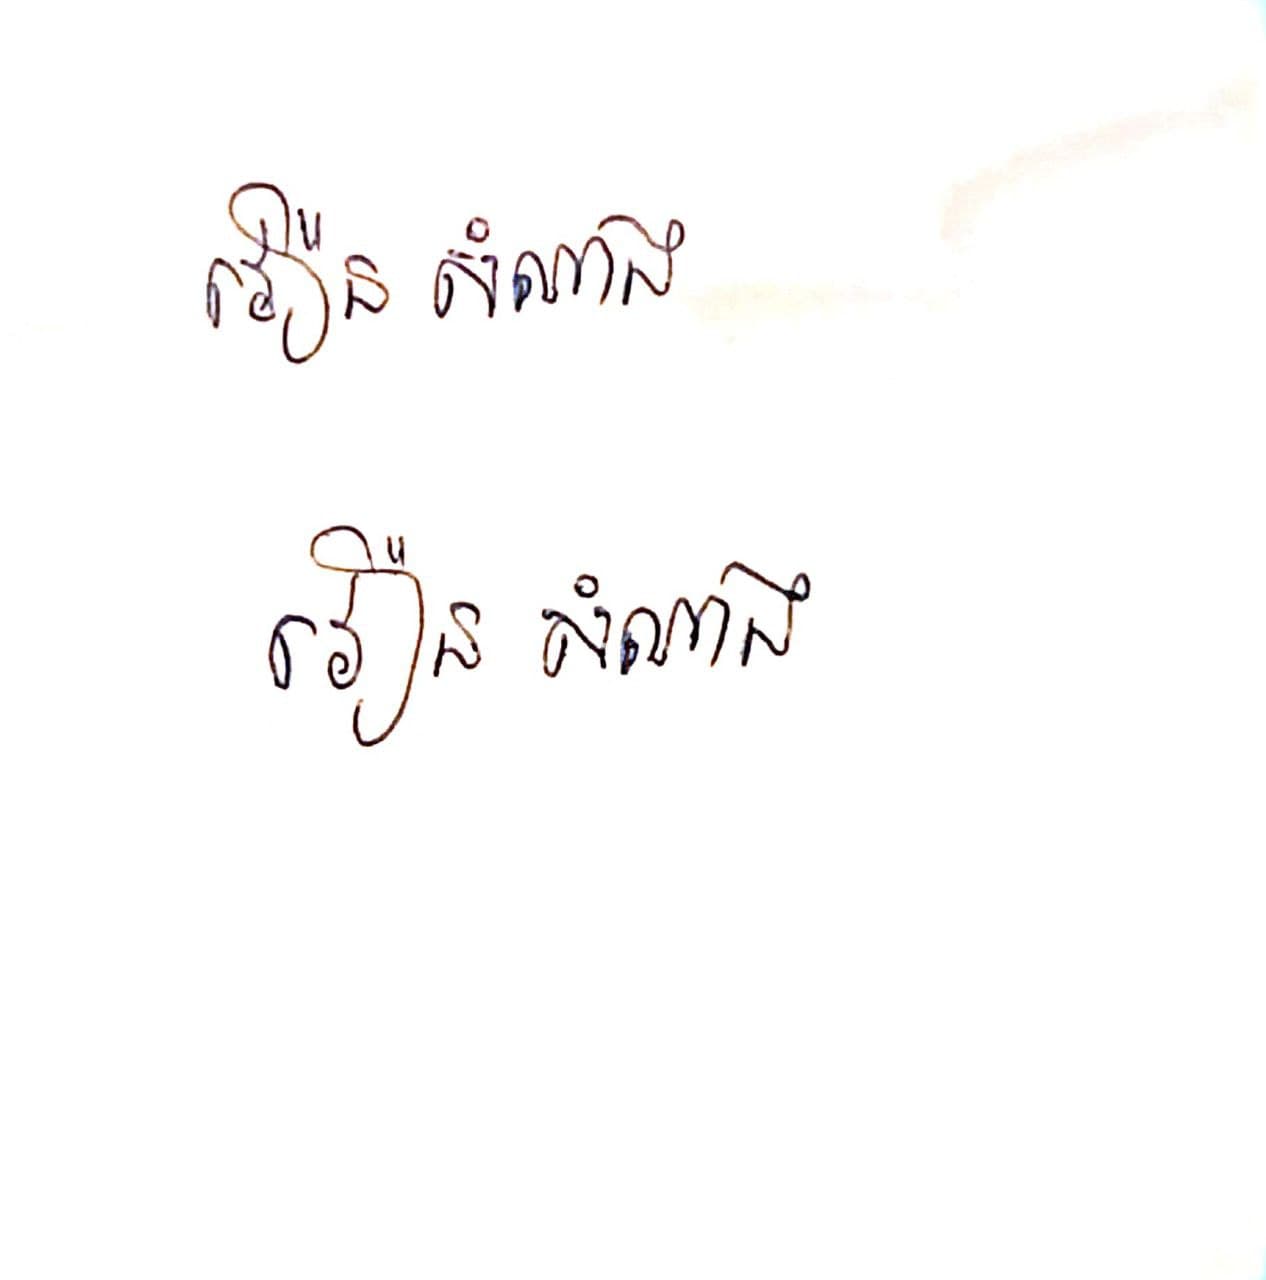 វឿន សំណាង
វឿន សំណាង